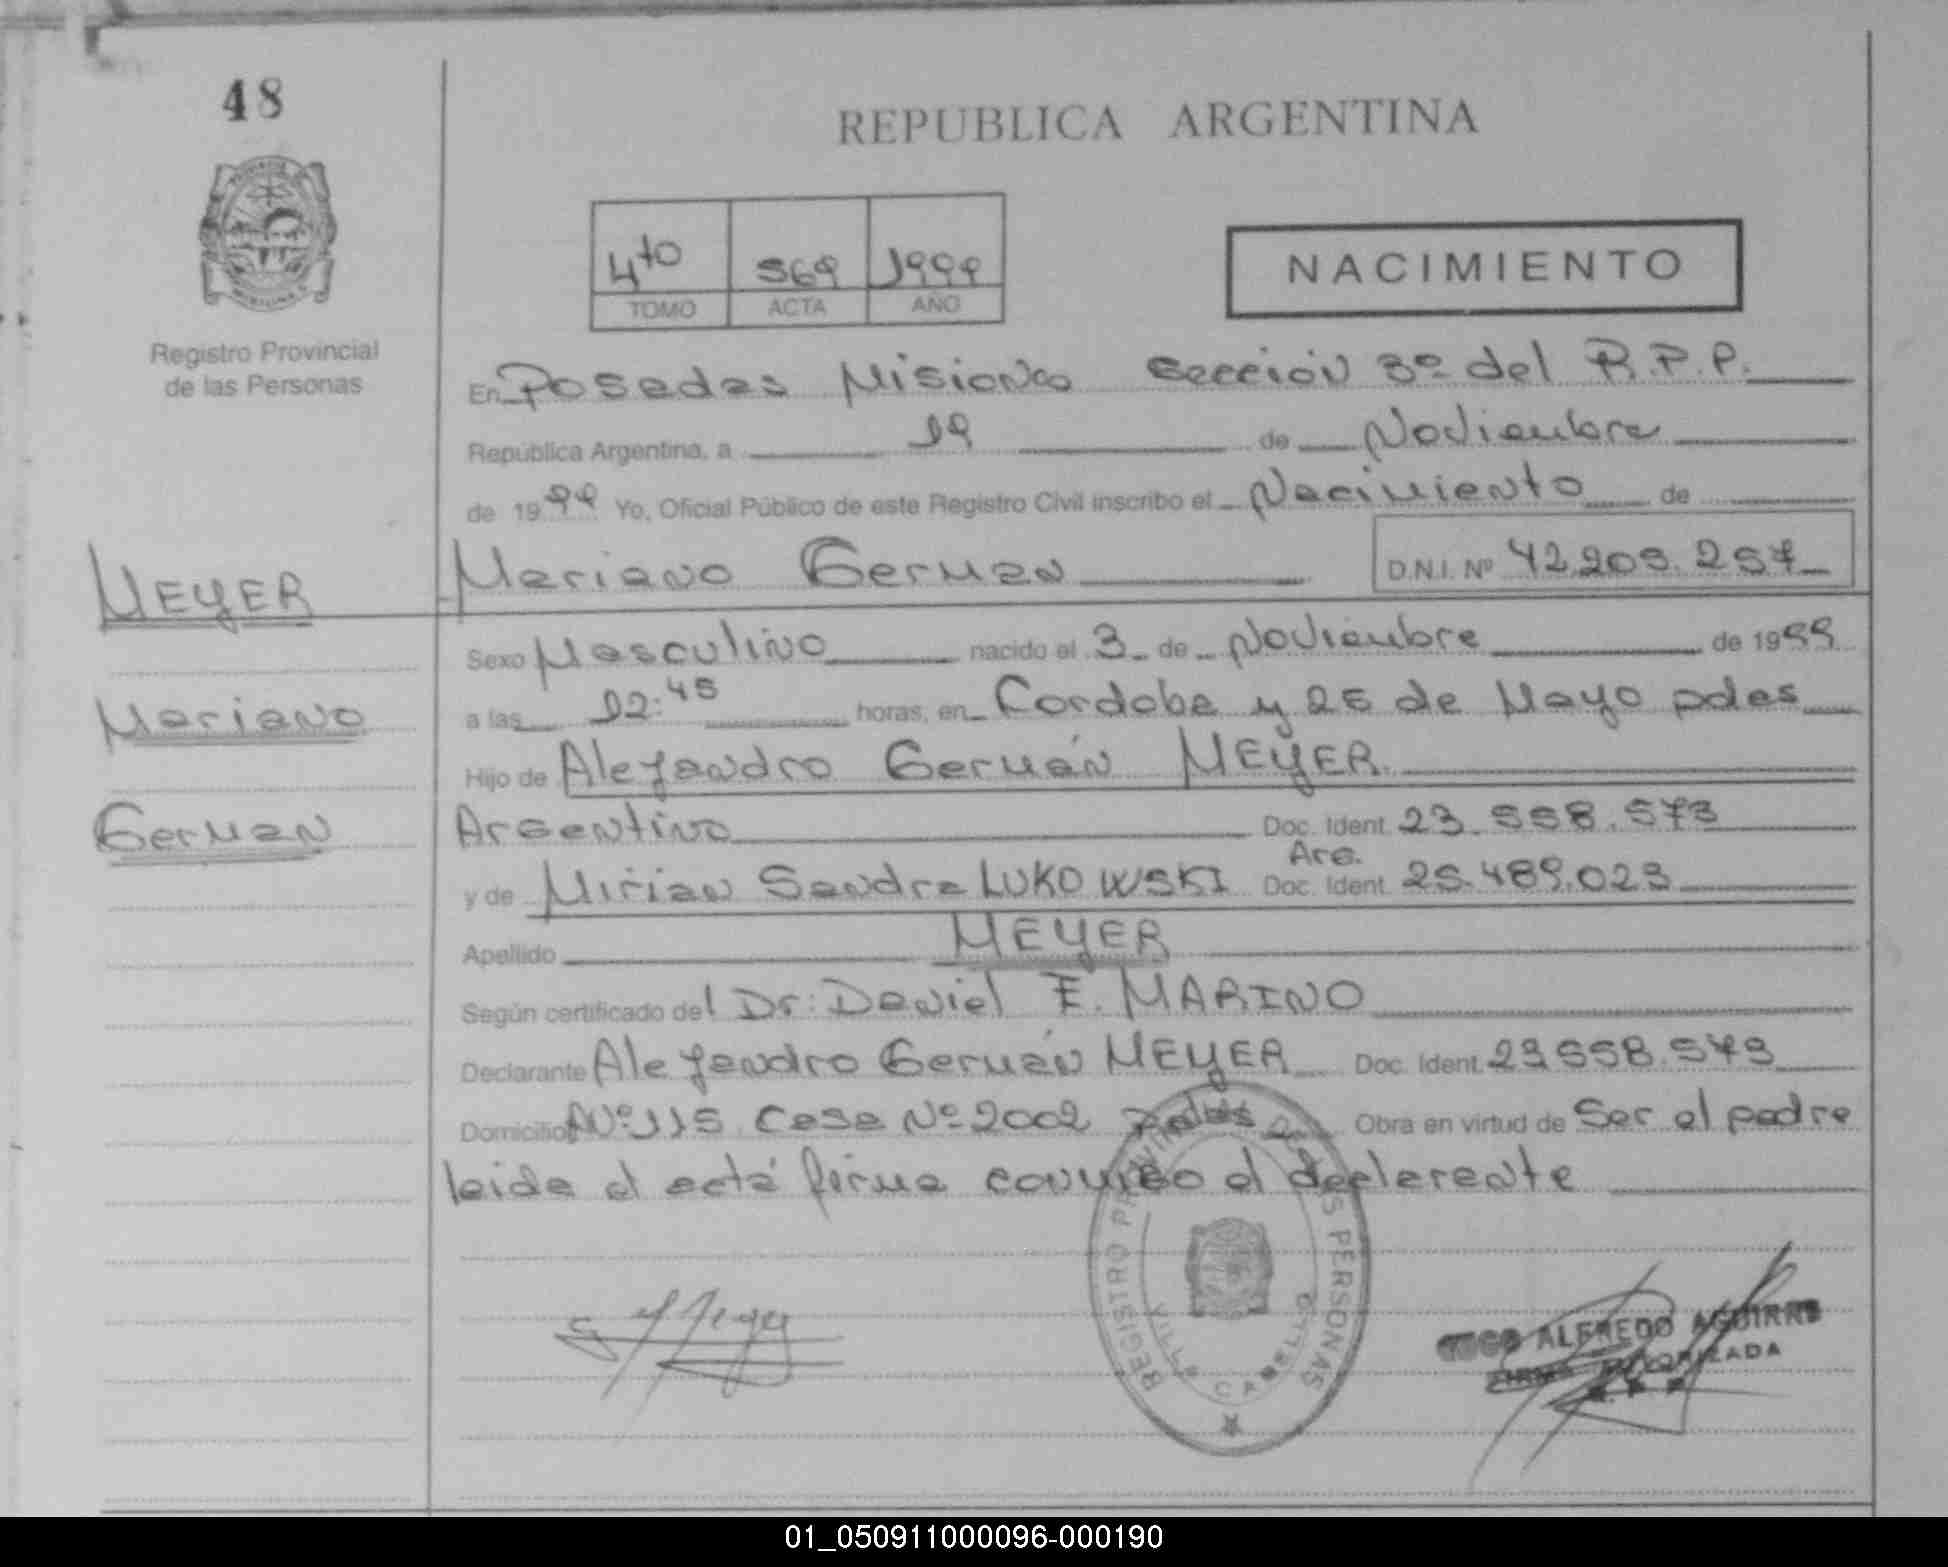 48
REPUBLICA ARGENTINA
4to 569 1999
TOMO ACTA AÑO
NACIMIENTO
Registro Provincial
de las Personas
En Posadas Misiones sección 3º del R.P.P.
República Argentina, a 19 de Noviembre
de 1999 Yo, Oficial Público de este Registro Civil inscribo el Nacimiento de
MEYER
Mariano German D.N.I. Nº 42.205.257
Sexo Masculino nacido el 3 de Noviembre de 1999
Mariano
a las 12:45 horas, en Cordoba y 25 de Mayo pdas
Hijo de Alejandro Germán MEYER
German
Argentino Doc. Ident. 23.558.573
Arg.
y de Mirian Sandra LUKOWSKI Doc. Ident. 25.489.023
Apellido MEYER
Según certificado del Dr: Daniel E. MARINO
Declarante Alejandro Germán MEYER Doc. Ident. 23558.573
Domicilio Nº 115 Casa Nº 2002 pdas Obra en virtud de Ser el padre
leida el acta firma conmigo el declarente
REGISTRO PROVINCIAL DE LAS PERSONAS
VILLA CABELLO
ALFREDO AGUIRRE
FIRMA AUTORIZADA
01_050911000096-000190